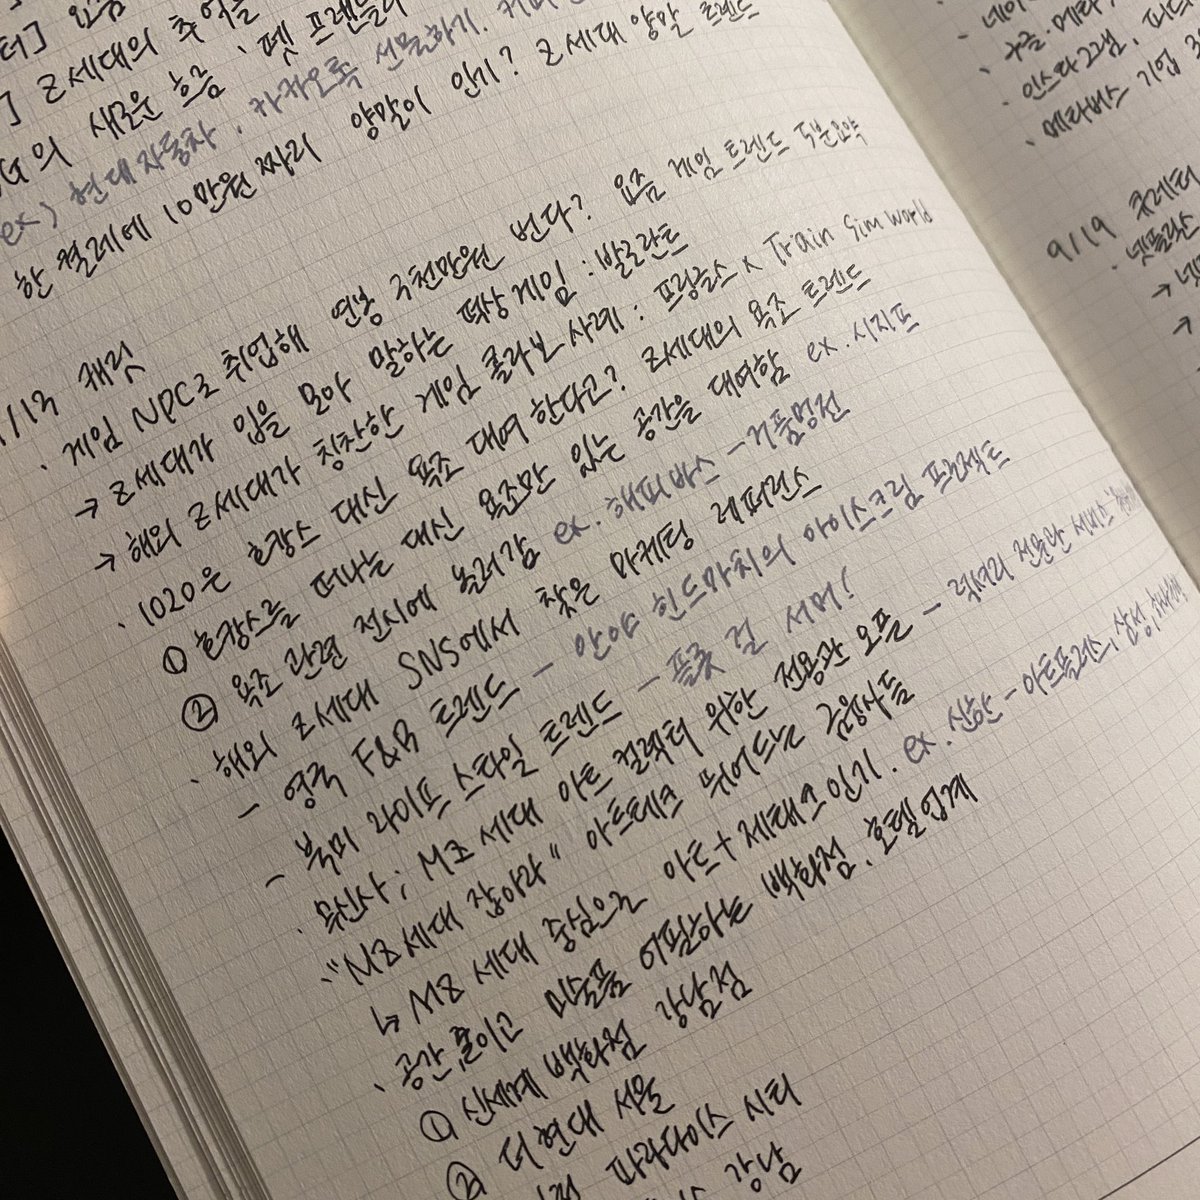 터] 요즘
] Z세대의 추억을
G의 새로운 흐름, 펫 프렌들리
ex) 현대자동차, 카카오톡 선물하기, 커피
한 켤레에 10만원 짜리 양말이 인기? Z세대 양말 트렌드
/13 캐릿
· 게임 NPC로 취업해 연봉 구천만원 번다? 요즘 게임 트렌드 5분요약
→ Z세대가 입을 모아 말하는 떡상게임 : 발로란트
→ 해외 Z세대가 칭찬한 게임 콜라보 사례 : 프링글스 x Train Sim World
· 1020은 호캉스 대신 욕조 대여한다고? Z세대의 욕조 트렌드
① 호캉스를 떠나는 대신 욕조만 있는 공간을 대여함 ex. 시지프
② 욕조 관련 전시에 놀러감 ex. 해피바스 - 거품멍전
· 해외 Z세대 SNS에서 찾은 마케팅 레퍼런스
- 영국 F&B 트렌드 - 안야 힌드마치의 아이스크림 프로젝트
- 북미 라이프 스타일 트렌드 - 플롯 걸 서머!
· 무신사; MZ세대 아트 컬렉터 위한 전용관 오픈 - 럭셔리 전용관 서비스
· "MZ세대 잡아라" 아트테크 뛰어드는 금융사들
↳ MZ세대 중심으로 아트+재테크 인기. ex. 신한 - 아트플러스, 삼성,
· 공간 줄이고 미술품 어필하는 백화점, 호텔업계
① 신세계 백화점 강남점
② 더현대 서울
파라다이스 시티
강남
네이
· 구글, 메타,
· 인스타그램, 피드
· 메타버스 기업
9/19 큐레터
· 넷플릭스
→ 넷
→